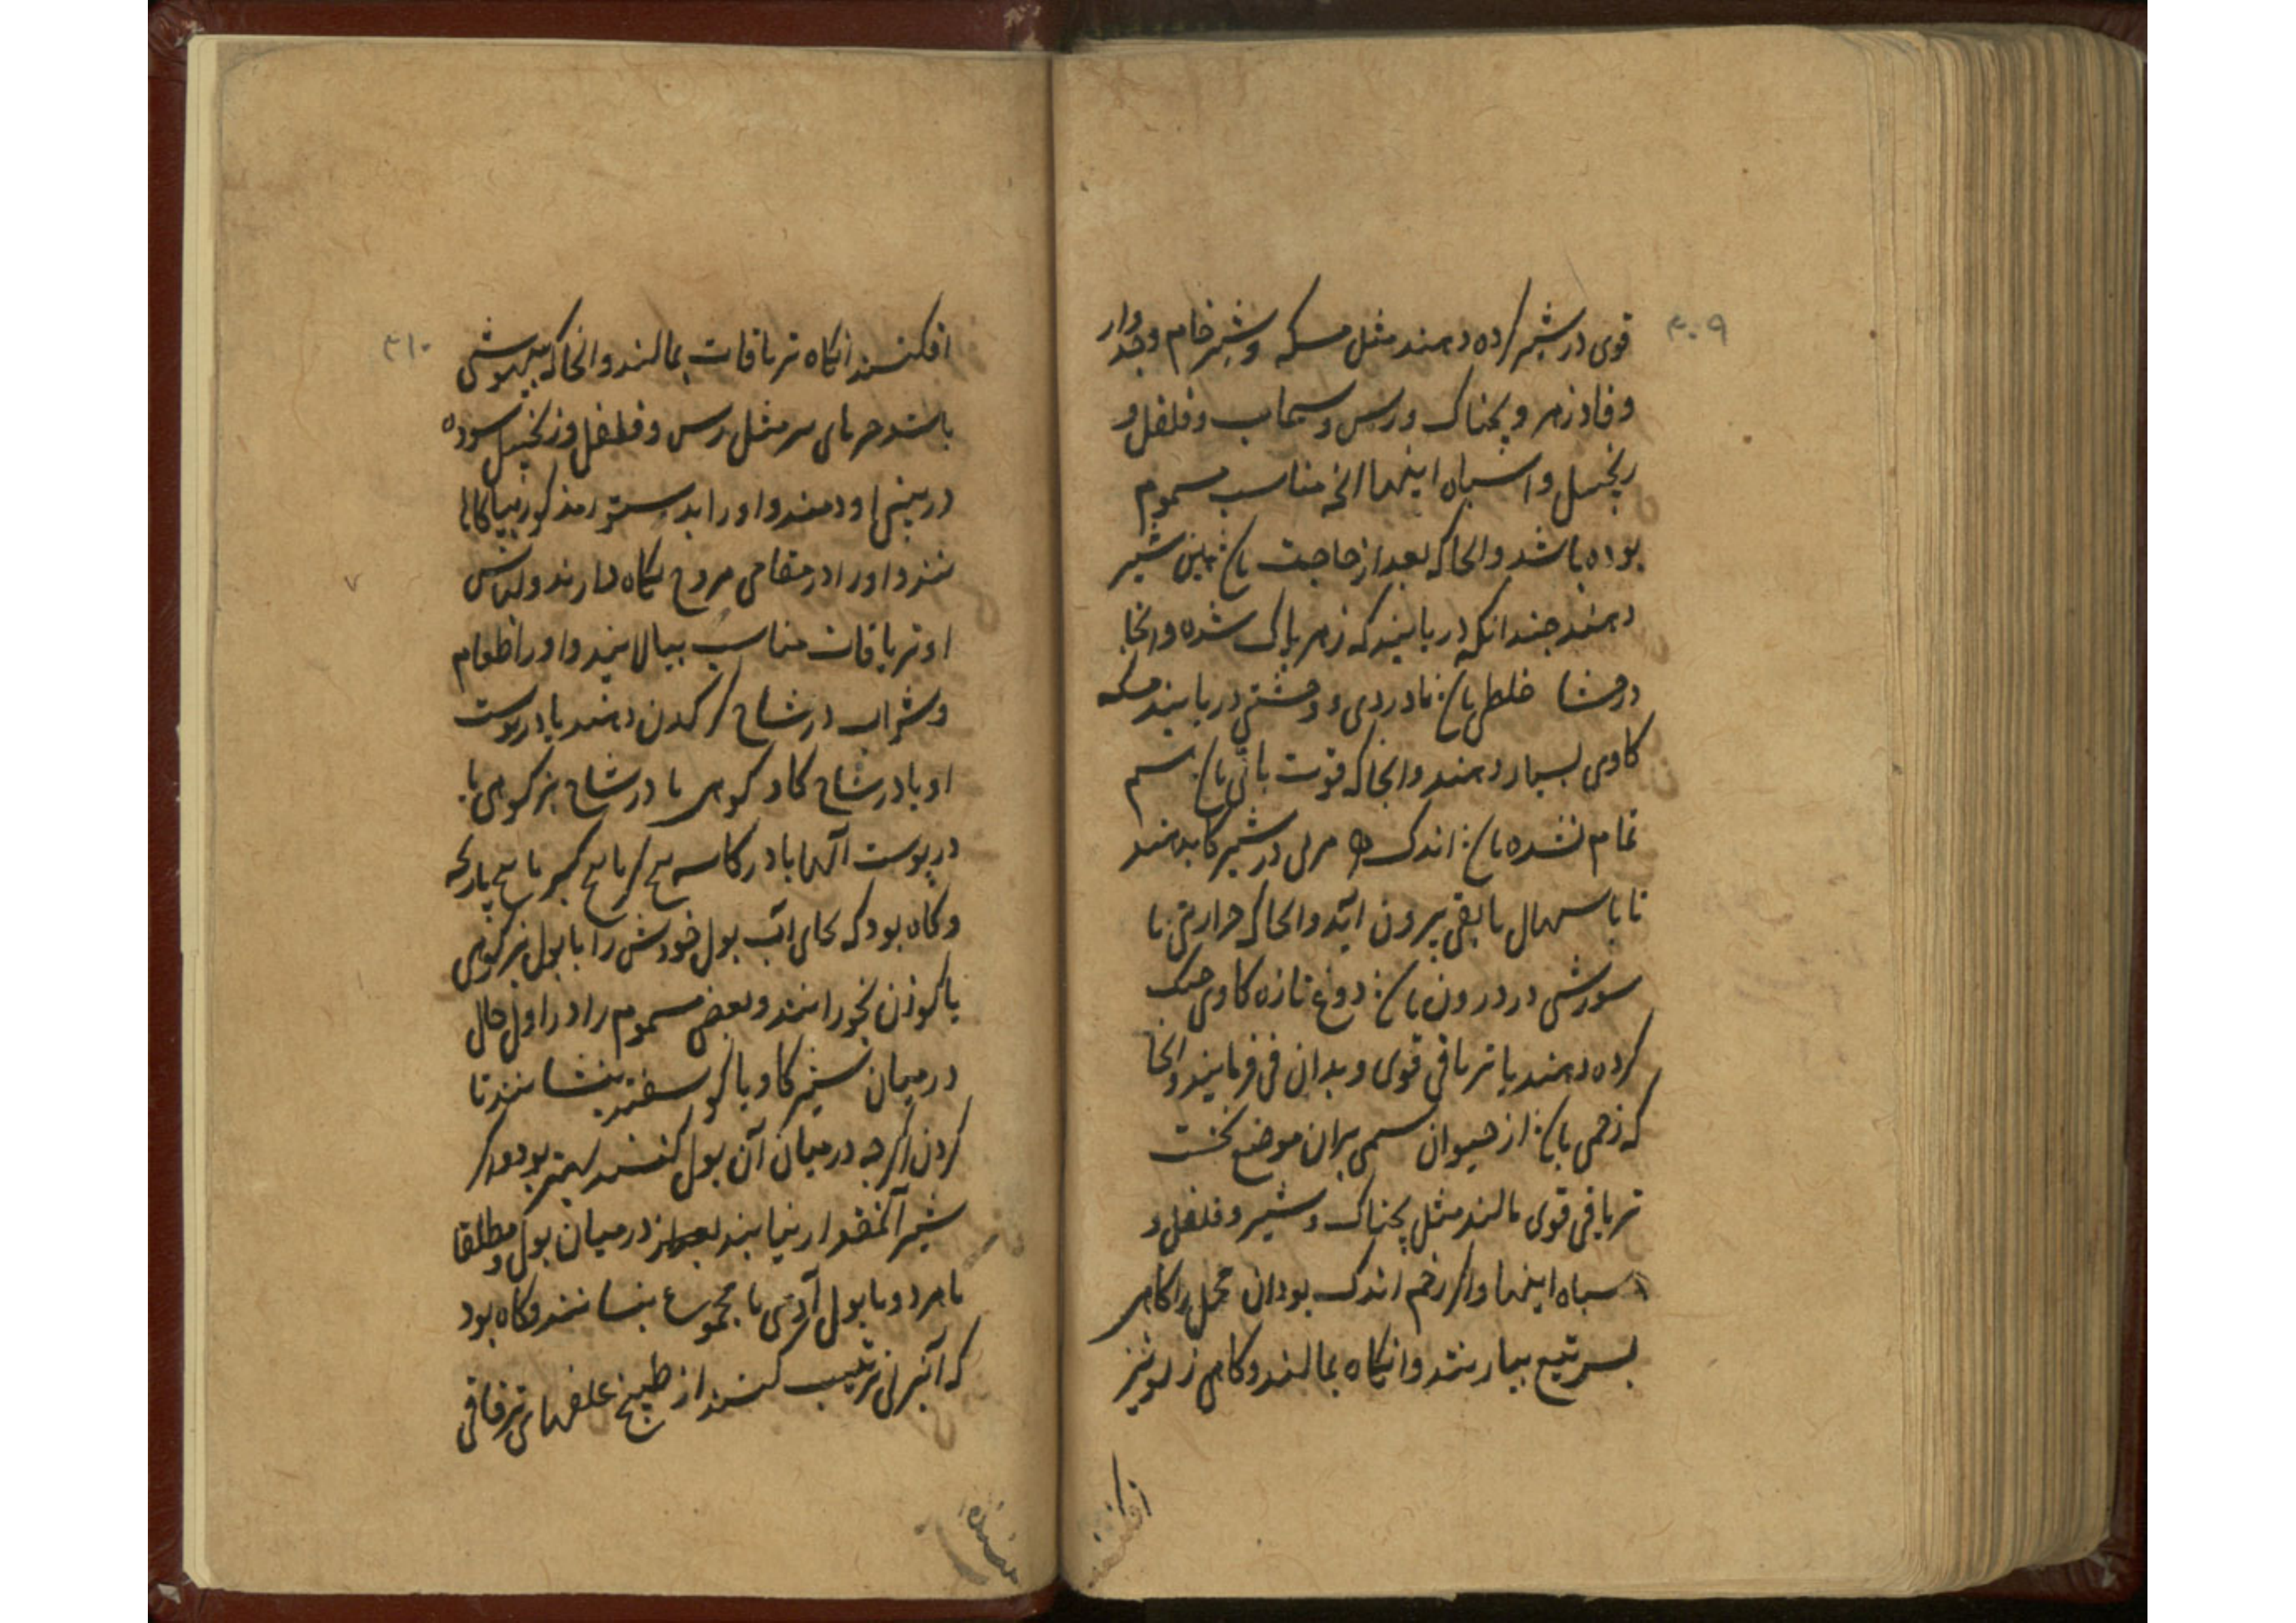 ۳۰۹
قوی در شیر کرده دهند مثل مسکه و شیر خام وجدوار
و فادزهر و بچناک و رس و سیماب و فلفل و
زنجبیل و اشباه اینها آنچه مناسب مسموم
بوده باشد و انجا که بعد از حاجت باشد همین شیر
دهند چندانکه دریابند که زهر پاک شده و انجا
در منشا خلطی باشد تا دردی و وحشتی دریابند مسکه
کاوی بسیار دهند و انجا که قوت باقی باشد سم
تمام نشده باشد اندک مرلی در شیر کا بدهند
تا باسهال یا بقی بیرون آید و انجا که حرارتی یا
سوزشی در درون باشد دوغ تازه کاوی خنک
کرده دهند یا تریاقی قوی و بدان قی فرمایند و انجا
که زخمی باشد از حیوان سمی بران موضع نخست
تریاقی قوی مالند مثل بچناک و شیر و فلفل و
اشباه اینها و اگر زخم اندک بود آن محل را کاهی
بسر تیغ بیازنند و انکاه بمالند و کاهی زلو نیز
افکنند
۳۱۰
افکنند انکاه تریاقات بمالند و انجا که بیهوشی
باشد حرهای سر مثل رس و فلفل و زنجبیل سوده
در بینی او دمند و او را بدستور مذکور زیباکالها
نند و او را در مقامی مروح نکاه دارند و لباس
او تریاقات مناسب بیالایند و او را طعام
و شراب در شاخ کرکدن دهند یا در پوست
او یا در شاخ کاو کوهی یا در شاخ بز کوهی یا
در پوست آنها یا در کاسه
و کاه بود که بجای آب بول خودش را یا بول بز کوهی
یا کوزن بخورانند و بعض مسموم را در اول حال
در میان شیر کاو یا کوسفند بنشانند تا
کردن اکرچه در میان آن بول کنند بهتر بود و اکر
شیر آنمقدار نیابند در میان بول و مطلقا
یا مرد و یا بول آدمی یا مجموع بنشانند و کاه بود
که آبزنی ترتیب کنند از طبیخ علفهای تریاقی